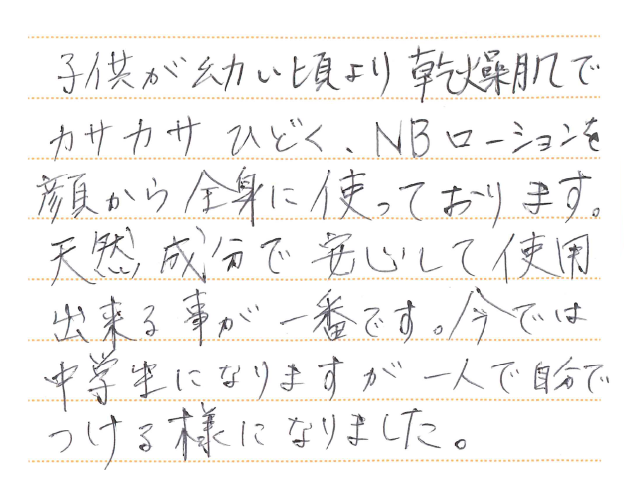 子供が幼い頃より乾燥肌で
カサカサひどく、NBローションを
顔から全身に使っております。
天然成分で安心して使用
出来る事が一番です。今では
中学生になりますが一人で自分で
つける様になりました。